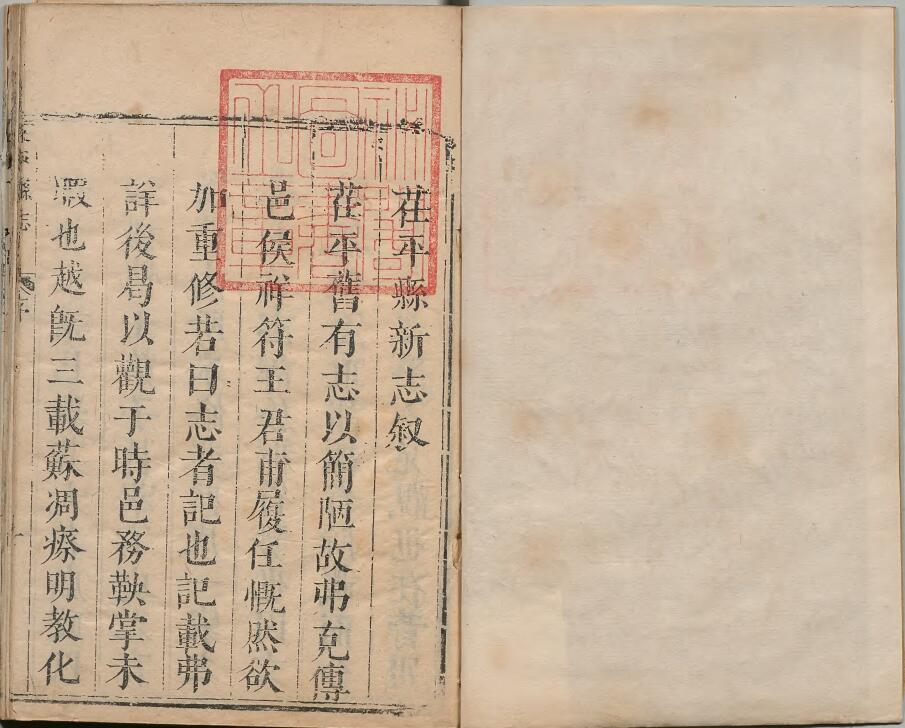 茌平縣新志叙
茌平舊有志以簡陋故弗克傳
邑侯祥符王君甫履任慨然欲
加重修若曰志者記也記載弗
詳後曷以觀于時邑務鞅掌未
暇也越旣三載蘇凋瘵明教化
縣志